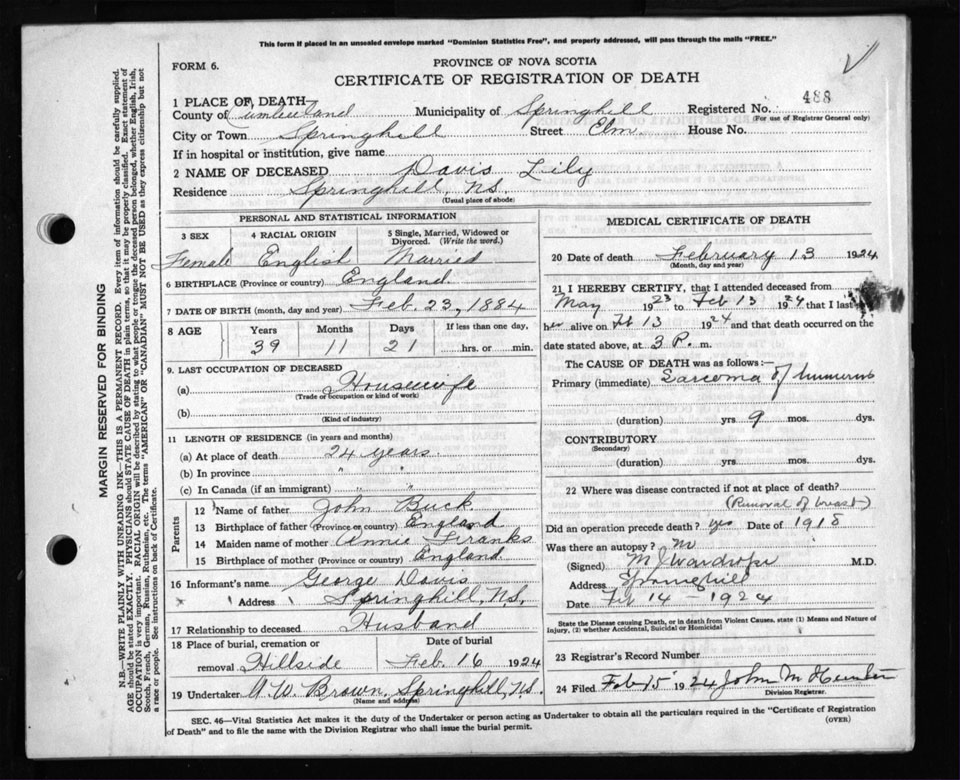 This form if placed in an unsealed envelope marked "Dominion Statistics Free", and properly addressed, will pass through the mails "FREE."
FORM 6.
PROVINCE OF NOVA SCOTIA
CERTIFICATE OF REGISTRATION OF DEATH
1 PLACE OF DEATH
County of Cumberland Municipality of Springhill Registered No. 488
(For use of Registrar General only)
City or Town Springhill Street Elm House No.
If in hospital or institution, give name
2 NAME OF DECEASED Davis Lily
Residence Springhill, N.S.
(Usual place of abode)
PERSONAL AND STATISTICAL INFORMATION
3 SEX 4 RACIAL ORIGIN 5 Single, Married, Widowed or Divorced. (Write the word.)
Female English Married
6 BIRTHPLACE (Province or country) England
7 DATE OF BIRTH (month, day and year) Feb. 23, 1884
8 AGE Years Months Days If less than one day,
39 11 21 hrs. or min.
9. LAST OCCUPATION OF DECEASED
(a) Housewife
(Trade or occupation or kind of work)
(b)
(Kind of industry)
11 LENGTH OF RESIDENCE (in years and months)
(a) At place of death 24 years
(b) In province " "
(c) In Canada (if an immigrant) " "
Parents
12 Name of father John Buck
13 Birthplace of father (Province or country) England
14 Maiden name of mother Annie Franks
15 Birthplace of mother (Province or country) England
16 Informant's name George Davis
" Address " Springhill, N.S.
17 Relationship to deceased Husband
18 Place of burial, cremation or removal Hillside Date of burial Feb. 16 1924
19 Undertaker A. W. Brown, Springhill, N.S.
(Name and address)
MEDICAL CERTIFICATE OF DEATH
20 Date of death February 13 1924
(Month, day and year)
21 I HEREBY CERTIFY, that I attended deceased from
May 1923 to Feb 13 1924 that I last
her alive on Feb 13 1924 and that death occurred on the
date stated above, at 3 P. m.
The CAUSE OF DEATH was as follows:—
Primary (immediate) Sarcoma of humerus
(duration) yrs 9 mos. dys.
CONTRIBUTORY
(Secondary)
(duration) yrs mos. dys.
22 Where was disease contracted if not at place of death?
(Removal of breast)
Did an operation precede death? yes Date of 1918
Was there an autopsy? no
(Signed) M J Wardrope M.D.
Address Springhill
Date Feb 14 - 1924
State the Disease causing Death, or in death from Violent Causes, state (1) Means and Nature of
Injury, (2) whether Accidental, Suicidal or Homicidal
23 Registrar's Record Number
24 Filed Feb 15 1924 John M Hunter
Division Registrar.
SEC. 46—Vital Statistics Act makes it the duty of the Undertaker or person acting as Undertaker to obtain all the particulars required in the "Certificate of Registration
of Death" and to file the same with the Division Registrar who shall issue the burial permit.
(OVER)
MARGIN RESERVED FOR BINDING
N.B.—WRITE PLAINLY WITH UNFADING INK—THIS IS A PERMANENT RECORD. Every item of information should be carefully supplied.
AGE should be stated EXACTLY. PHYSICIANS should STATE CAUSE OF DEATH in plain terms, so that it may be properly classified. Exact statement of
OCCUPATION is very important. RACIAL ORIGIN will be described by stating to what people or tongue the deceased person belonged, whether English, Irish,
Scotch, French, German, Russian, Ruthenian, etc. The terms "AMERICAN" or "CANADIAN" MUST NOT BE USED as they express citizenship but not
a race or people. See instructions on back of Certificate.